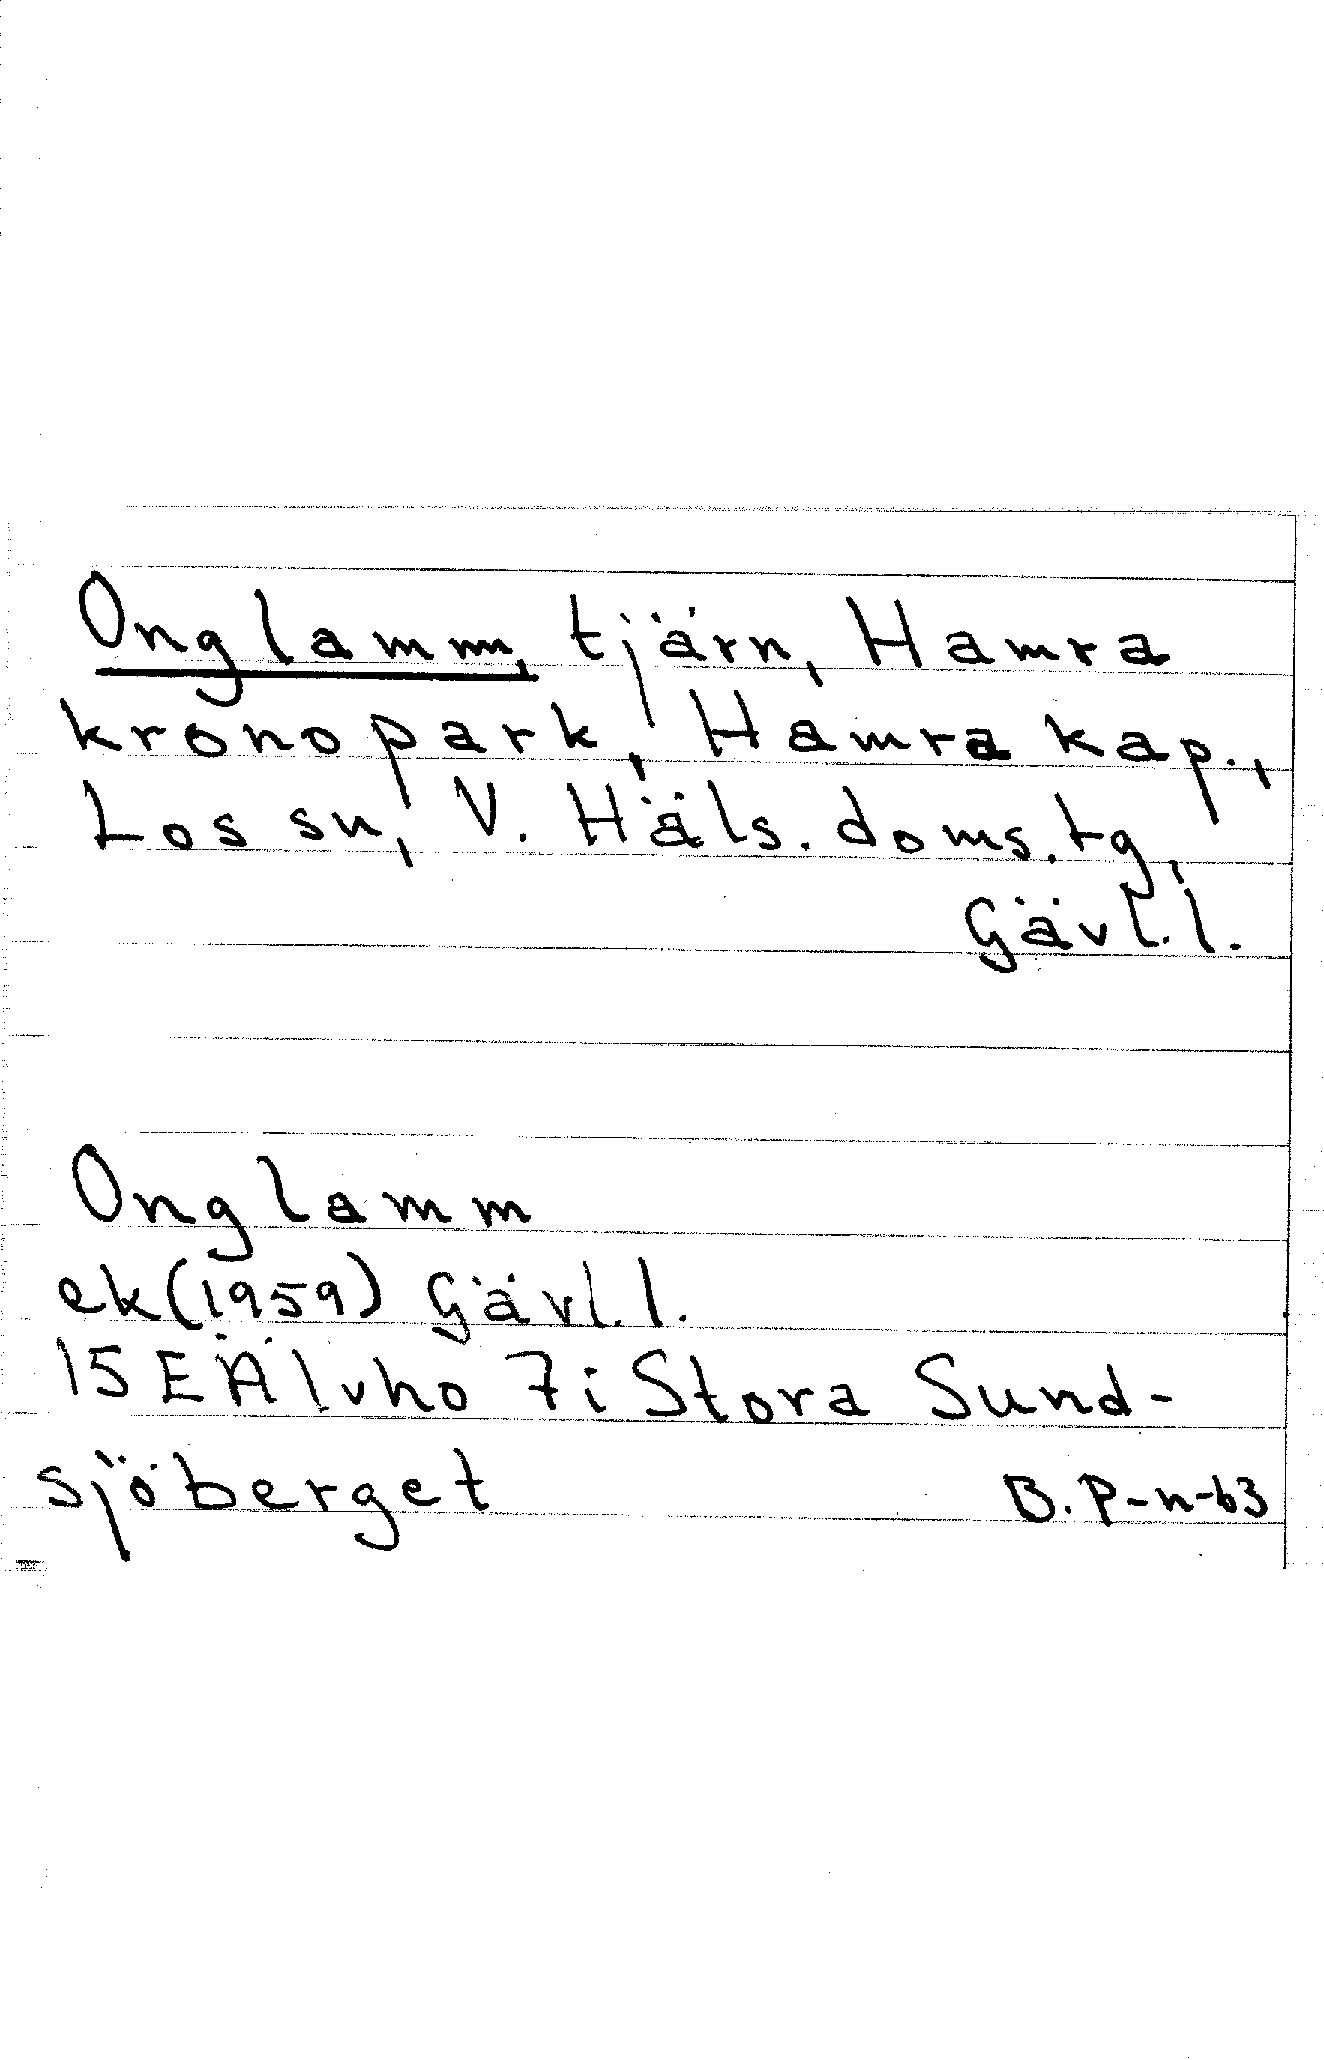 Onglamm, tjärn, Hamra
kronopark, Hamra kap.,
Los sn, V. Häls. doms.tg,
Gävl.l.
Onglamm
ek (1959) Gävl.l.
15E Älvho 7i Stora Sund-
sjöberget
B. P-n-63